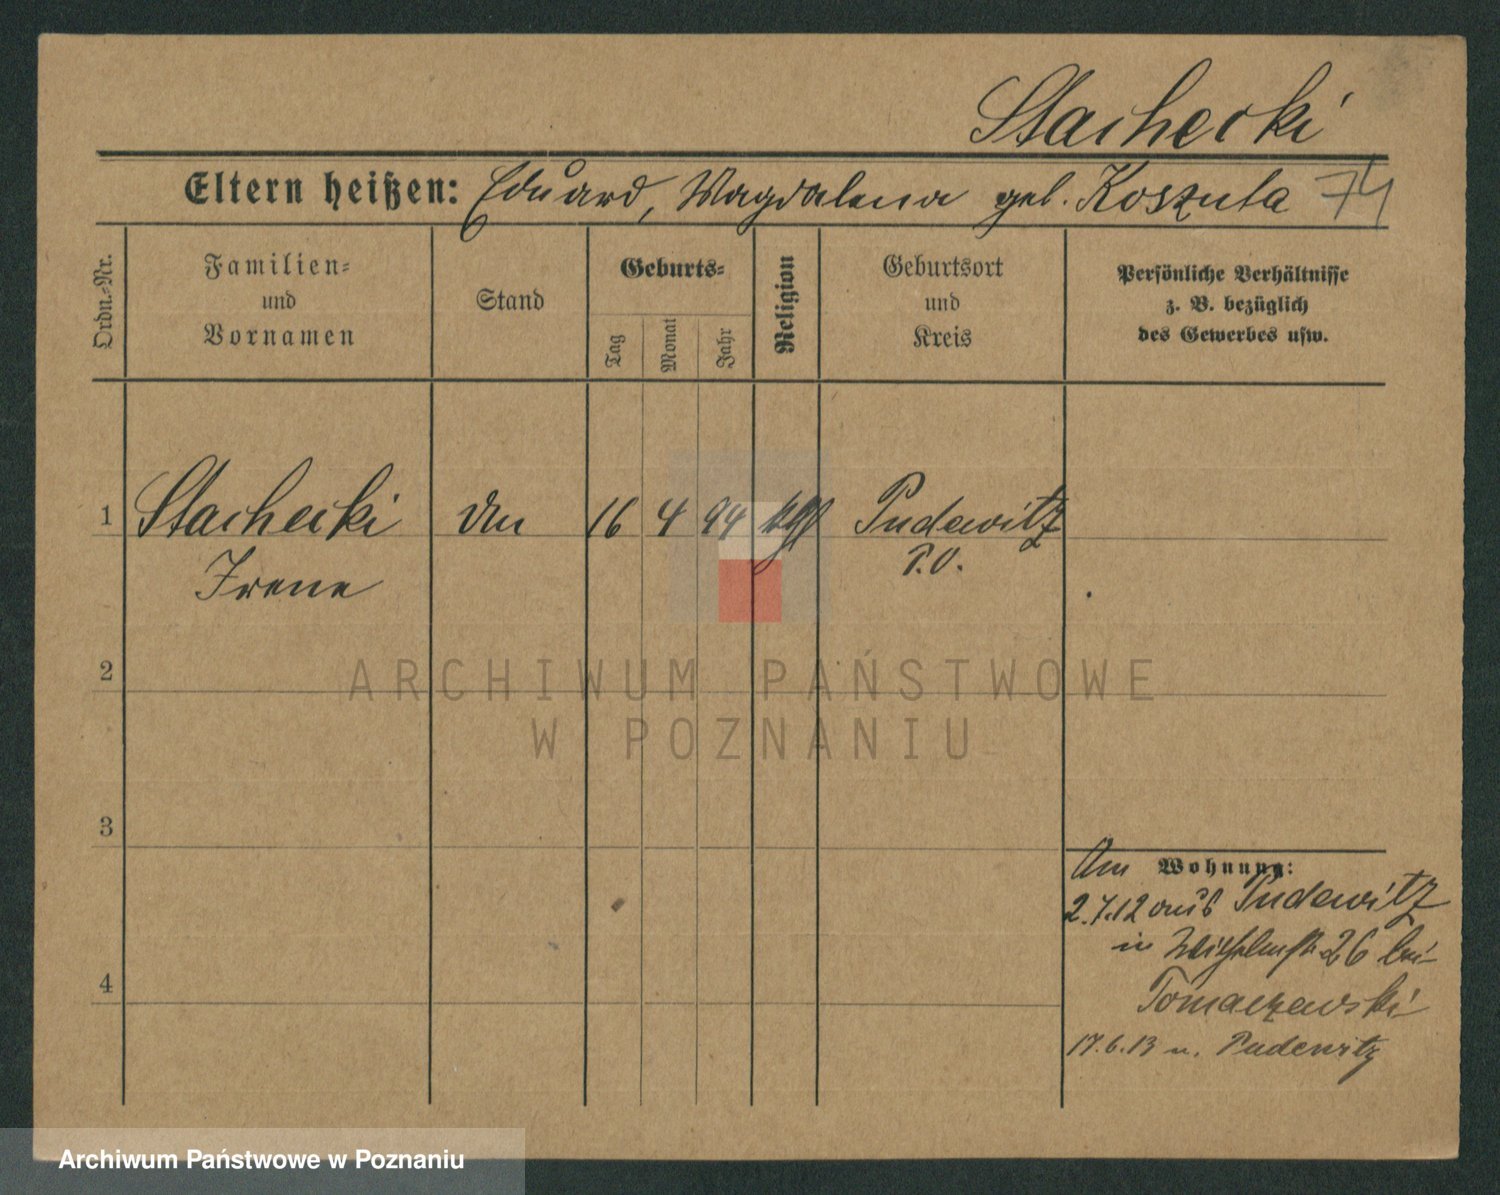 Stachecki
Eltern heißen: Eduard, Magdalena geb. Koszuta 74
Ordn.-Nr.
Familien-
und
Vornamen
Stand
Geburts-
Tag
Monat
Jahr
Religion
Geburtsort
und
Kreis
Persönliche Verhältnisse
z. B. bezüglich
des Gewerbes usw.
1 Stachecki 16 4 94 Pudewitz
Irene P.O.
2
ARCHIWUM PAŃSTWOWE
W POZNANIU
3
Am Wohnung:
2.7.12 aus Pudewitz
in Wilhelmstr. 26 bei
4
Tomaczewski
17.6.13 n. Pudewitz
Archiwum Państwowe w Poznaniu